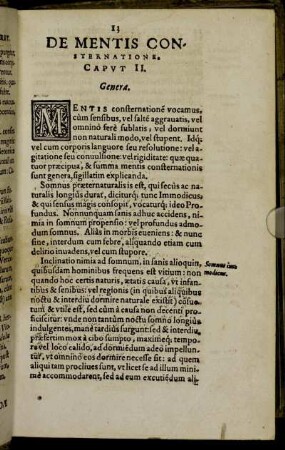 13
DE MENTIS CON-
STERNATIONE.
CAPVT II.
Genera.
MENTIS consternationē vocamus,
cùm sensibus, vel saltē aggrauatis, vel
omninò ferè sublatis; vel dormiunt
non naturali modo, vel stupent. Idq́;
vel cum corporis languore seu resolutione: vel a-
gitatione seu conuulsione: vel rigiditate: quæ qua-
tuor præcipua, & summa mentis consternationis
sunt genera, sigillatim explicanda.
Somnus præternaturalis is est, qui secùs ac na-
turalis longiùs durat, diciturq́; tunc Immodicus
& qui sensus magis consopit, vocaturq́; ideo Pro-
fundus. Nonnunquam sanis adhuc accidens, ni-
mia in somnum propensio: vel profundus admo-
dum somnus. Aliàs in morbis eueniens: & nunc
sine, interdum cum febre, aliquando etiam cum
delirio inuadens, vel cum stupore.
Inclinatio nimia ad somnum, in sanis alioquin,
quibusdam hominibus frequens est vitium: non
quando hoc certis naturis, ætatis causa, vt infan-
tibus & senibus: vel regionis (in quibus aliquibus
noctu & interdiu dormire naturale existit) cōsue-
tum & vtile est, sed cùm à causa non decenti pro-
ficiscitur: vnde non tantùm noctu somno longiùs
indulgentes, manè tardiùs surgunt: sed & interdiu,
præsertim mox à cibo sumpto, maximeq́; tempo-
ra vel loco calido, ad dormiēdum adeò impellun-
tur, vt omninò eos dormire necesse sit: ad quem
aliqui tam procliues sunt, vt licet se ad illum mini-
mè accommodarent, sed ad eum excutiēdum ali-
Somnus im-
modicus.